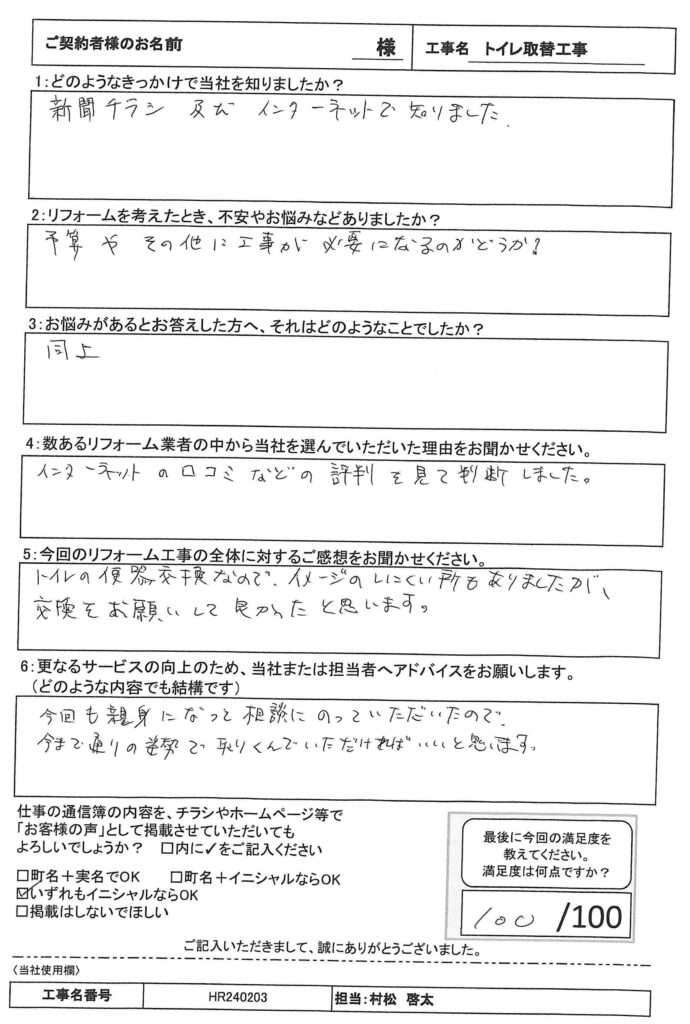 ご契約者様のお名前 様 工事名 トイレ取替工事
1：どのようなきっかけで当社を知りましたか？
新聞チラシ 及び インターネットで知りました.
2：リフォームを考えたとき、不安やお悩みなどありましたか？
予算や その他に工事が必要になるのかどうか！
3：お悩みがあるとお答えした方へ、それはどのようなことでしたか？
同上
4：数あるリフォーム業者の中から当社を選んでいただいた理由をお聞かせください。
インターネットの口コミなどの評判を見て判断しました。
5：今回のリフォーム工事の全体に対するご感想をお聞かせください。
トイレの便器交換なので、イメージのしにくい所もありましたが、
交換をお願いして良かったと思います。
6：更なるサービスの向上のため、当社または担当者へアドバイスをお願いします。
（どのような内容でも結構です）
今回も親身になって相談にのっていただいたので、
今まで通りの姿勢で取りくんでいただければいいと思います。
仕事の通信簿の内容を、チラシやホームページ等で
「お客様の声」として掲載させていただいても
よろしいでしょうか？ □内に✓をご記入ください
□町名＋実名でOK □町名＋イニシャルならOK
☑いずれもイニシャルならOK
□掲載はしないでほしい
最後に今回の満足度を
教えてください。
満足度は何点ですか？
100 /100
ご記入いただきまして、誠にありがとうございました。
〈当社使用欄〉
工事名番号 HR240203 担当：村松 啓太